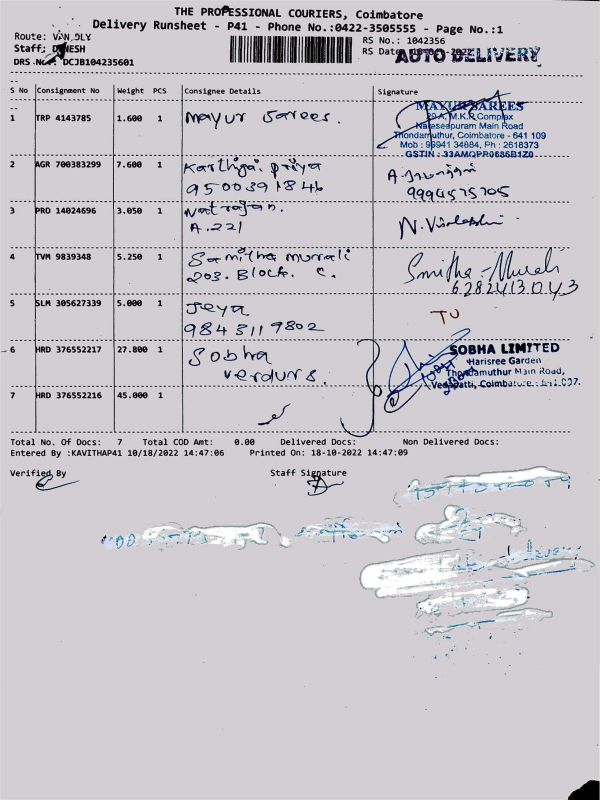 THE PROFESSIONAL COURIERS, Coimbatore
Delivery Runsheet - P41 - Phone No.:0422-3505555 - Page No.:1
Route: VAN DLY
RS No.: 1042356
Staff: DINESH
RS Date:
AUTO DELIVERY
DRS No.: DCJB104235601
S No Consignment No Weight PCS Consignee Details Signature
1 TRP 4143785 1.600 1 Mayur Sarees.
MAYUR SAREES
29 A, M.K.P. Complex
Naraseepuram Main Road
Thondamuthur, Coimbatore - 641 109
Mob : 99941 34884, Ph : 2618373
GSTIN : 33AMQPP0686B1Z0
2 AGR 700383299 7.600 1 Karthigai Priya
9500391846
9994575705
3 PRO 14024696 3.050 1 Natrajan.
A.221
4 TVM 9839348 5.250 1 Samitha Murrali
203. Block. C.
Smitha-Murali
6282413043
5 SLM 305627339 5.000 1 Jeya
9843119802
TU
6 HRD 376552217 27.800 1 Sobha
verdurs.
SOBHA LIMITED
Harisree Garden
Thondamuthur Main Road,
Vedapatti, Coimbatore - 641 007.
7 HRD 376552216 45.000 1
Total No. Of Docs: 7 Total COD Amt: 0.00 Delivered Docs: Non Delivered Docs:
Entered By :KAVITHAP41 10/18/2022 14:47:06 Printed On: 18-10-2022 14:47:09
Verified By Staff Signature